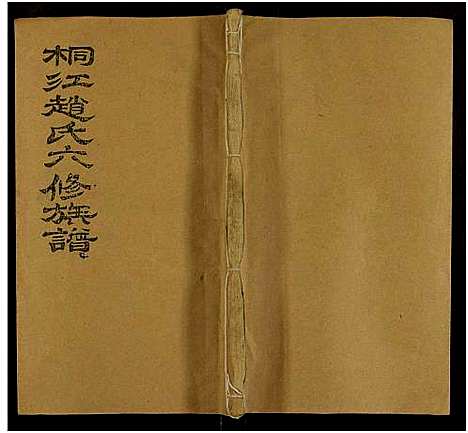 桐江趙氏六修族譜